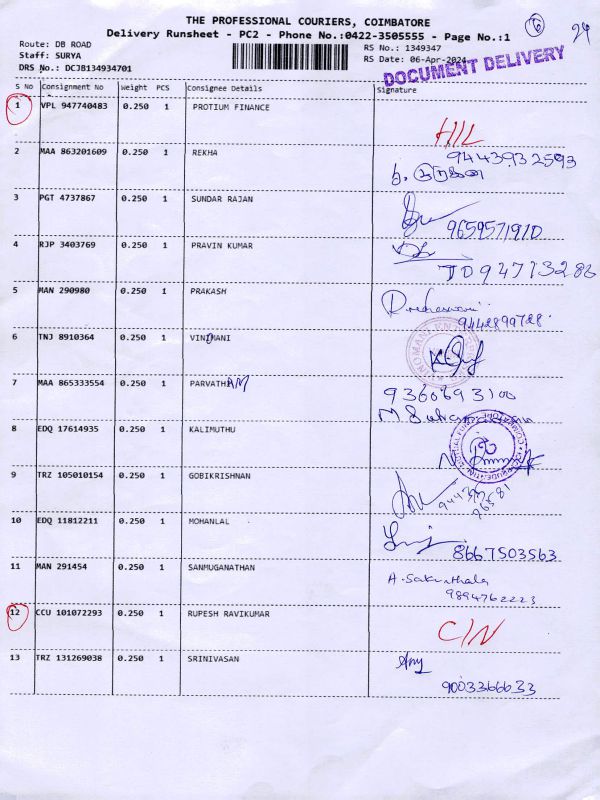 THE PROFESSIONAL COURIERS, COIMBATORE
6
24
Delivery Runsheet - PC2 - Phone No.:0422-3505555 - Page No.:1
Route: DB ROAD
RS No.: 1349347
Staff: SURYA
RS Date: 06-Apr-2024
DRS No.: DCJB134934701
DOCUMENT DELIVERY
S No Consignment No Weight PCS Consignee Details Signature
1 VPL 947740483 0.250 1 PROTIUM FINANCE
H/L
2 MAA 863201609 0.250 1 REKHA
9443932593
3 PGT 4737867 0.250 1 SUNDAR RAJAN
9659571910
4 RJP 3403769 0.250 1 PRAVIN KUMAR
5 MAN 290980 0.250 1 PRAKASH
9442899728
6 TNJ 8910364 0.250 1 VINDMANI
7 MAA 865333554 0.250 1 PARVATHAM
9360693100
8 EDQ 17614935 0.250 1 KALIMUTHU
9 TRZ 105010154 0.250 1 GOBIKRISHNAN
10 EDQ 11812211 0.250 1 MOHANLAL
8667503563
11 MAN 291454 0.250 1 SANMUGANATHAN
A. Sakunthala
9894762223
12 CCU 101072293 0.250 1 RUPESH RAVIKUMAR
C/N
13 TRZ 131269038 0.250 1 SRINIVASAN
9003366633